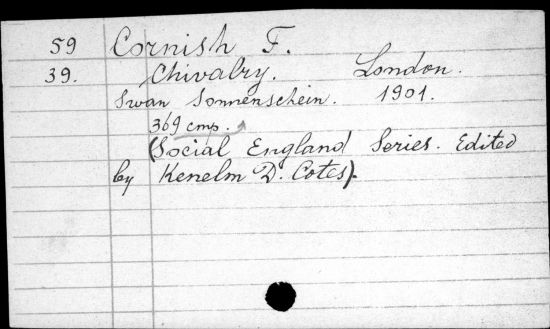 59 Cornish F.
39. Chivalry. London.
Swan Sonnenschein. 1901.
369 cmp.
(Social England Series. Edited
by Kenelm D. Cotes).